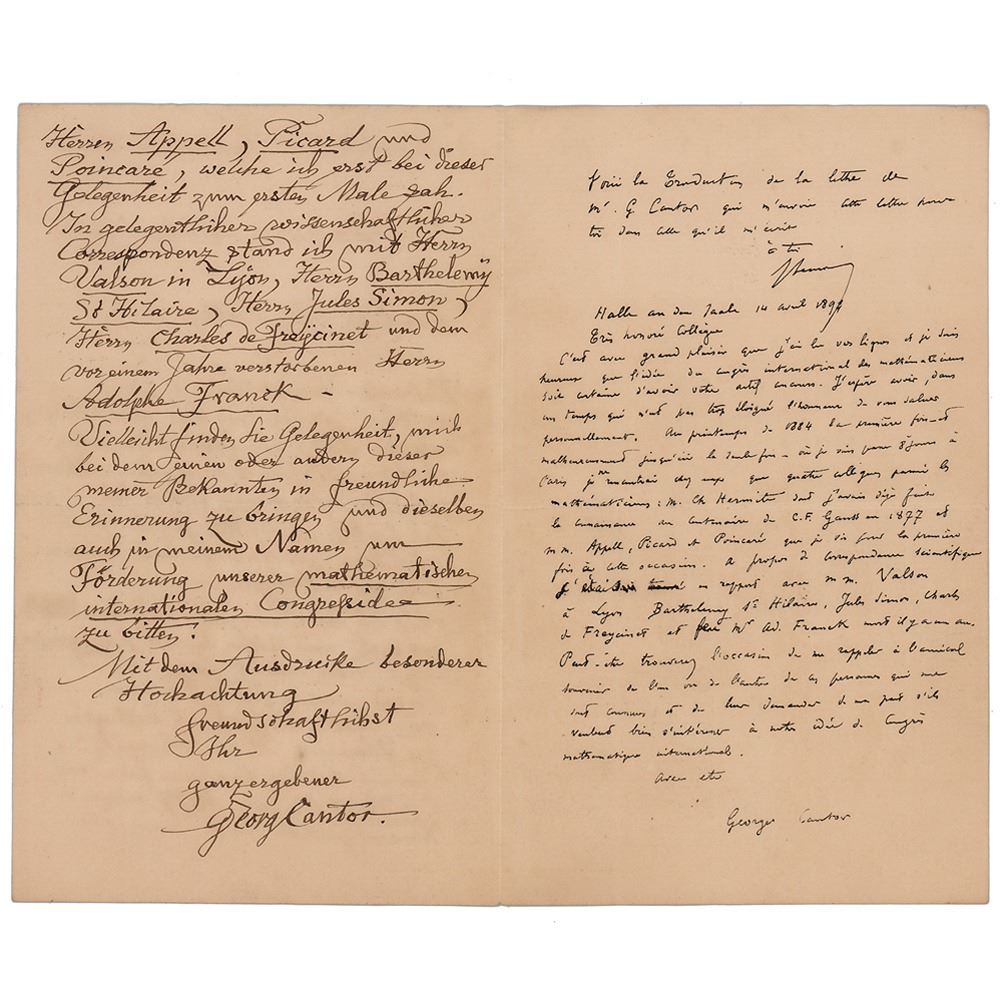 Herrn Appell, Picard und
Poincaré, welche ich erst bei dieser
Gelegenheit zum ersten Male sah.
In gelegentlicher wissenschaftlicher
Correspondenz stand ich mit Herrn
Valson in Lyon, Herrn Barthelemÿ
St Hilaire, Herrn Jules Simon,
Herrn Charles de Freÿcinet und dem
vor einem Jahre verstorbenen Herrn
Adolphe Franck –
Vielleicht finden Sie Gelegenheit, mich
bei dem einen oder andern dieser
meiner Bekannten in freundliche
Erinnerung zu bringen und dieselben
auch in meinem Namen um
Förderung unserer mathematischen
internationalen Congressidee
zu bitten.
Mit dem Ausdrucke besonderer
Hochachtung
freundschaftlichst
Ihr
ganz ergebener
Georg Cantor.
Voici la traduction de la lettre de
Mr. G Cantor qui m'envoie cette lettre pour
toi dans celle qu'il m'écrit
à toi
Halle an der Saale 14 avril 189
Très honoré Collègue
C'est avec grand plaisir que j'ai lu vos lignes et je suis
heureux que l'idée du congrès international des mathématiciens
soit certaine d'avoir votre actif concours. J'espère avoir, dans
un temps qui n'est pas trop éloigné l'honneur de vous saluer
personnellement. Au printemps de 1884 la première fois et
malheureusement jusqu'ici la seule fois – où je suis pour 8 jours à
Paris je ne rencontrais chez eux que quatre collègues parmi les
mathématiciens: M. Ch Hermite dont j'avais déjà fait
la connaissance au centenaire de C.F. Gauss en 1877 et
MM. Appell, Picard et Poincaré que je vis pour la première
fois à cette occasion. A propos de correspondance scientifique
j' en rapport avec MM. Valson
à Lyon Barthelemy St Hilaire, Jules Simon, Charles
de Freycinet et feu Mr Ad. Franck mort il y a un an.
Peut-être trouverez l'occasion de me rappeler à l'amical
souvenir de l'un ou de l'autre de ces personnes qui me
sont connues et de leur demander de ma part s'ils
veulent bien s'intéresser à notre idée de Congrès
mathématique international.
Avec etc
Georges Cantor